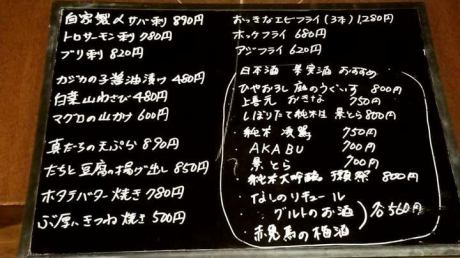 自家製〆サバ刺 890円
トロサーモン刺 780円
ブリ刺 820円
カジカの子醤油漬け 480円
白菜山わさび 480円
マグロの山かけ 600円
真だちの天ぷら 890円
たちと豆腐の揚げ出し 850円
ホタテバター焼き 780円
ぶ厚いきつね焼き 500円
おっきなエビフライ(3本) 1,280円
ホッケフライ 680円
アジフライ 620円
日本酒 果実酒 おすすめ
ひやおろし 庭のうぐいす 800円
上喜元 おきな 750円
しぼりたて純米生 景とら 800円
・純米 凌駕 750円
・AKABU 700円
・景とら 700円
・純米大吟醸 獺祭 800円
・なしのリキュール
・グルトのお酒
・赤兎馬の梅酒
各560円